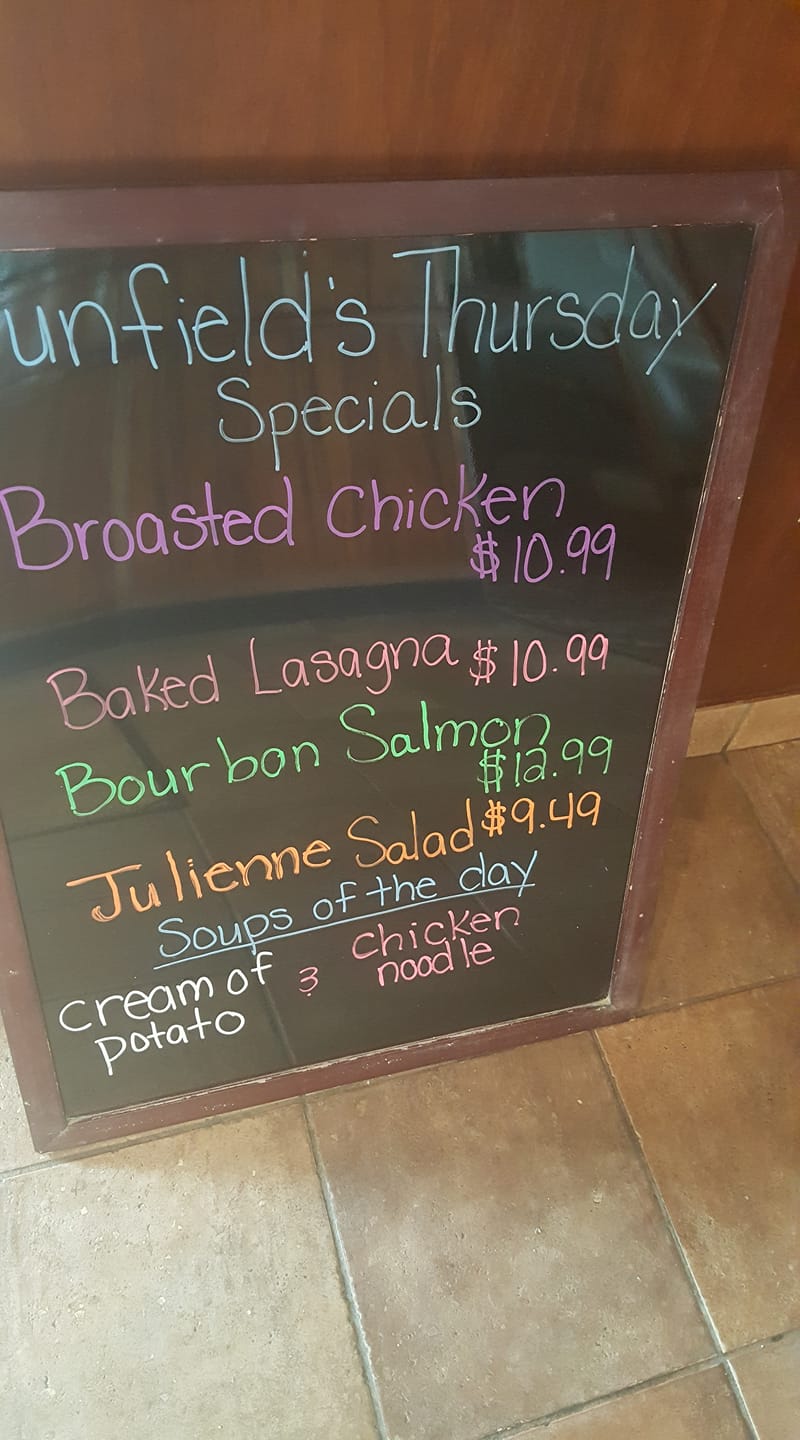 unfield's Thursday
Specials
Broasted Chicken
$10.99
Baked Lasagna $10.99
Bourbon Salmon
$12.99
Julienne Salad $9.49
Soups of the day
cream of & chicken
potato noodle